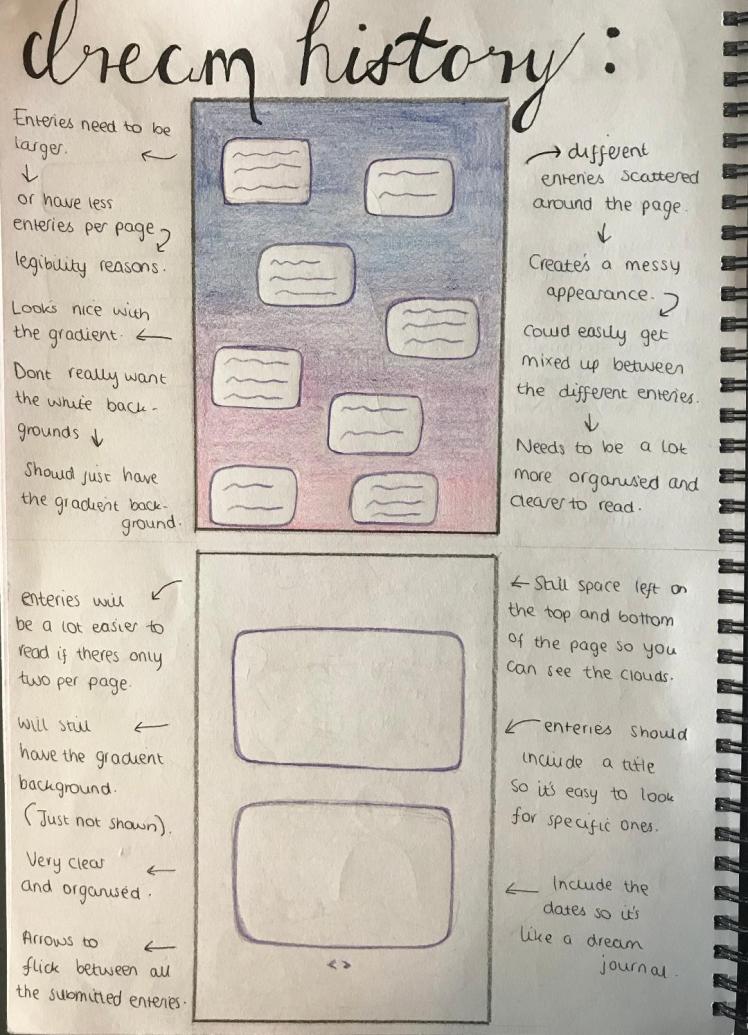 dream history:
Enteries need to be
larger.
or have less
enteries per page
legibility reasons.
Looks nice with
the gradient.
Dont really want
the white back-
grounds
Should just have
the gradient back-
ground.
different
enteries scattered
around the page.
Creates a messy
appearance.
Could easily get
mixed up between
the different enteries.
Needs to be a lot
more organised and
clearer to read.
enteries will
be a lot easier to
read if theres only
two per page.
Will still
have the gradient
background.
(Just not shown).
Very clear
and organised.
Arrows to
flick between all
the submitted enteries.
Still space left on
the top and bottom
of the page so you
can see the clouds.
enteries should
include a title
so it's easy to look
for specific ones.
Include the
dates so it's
like a dream
journal.
< >